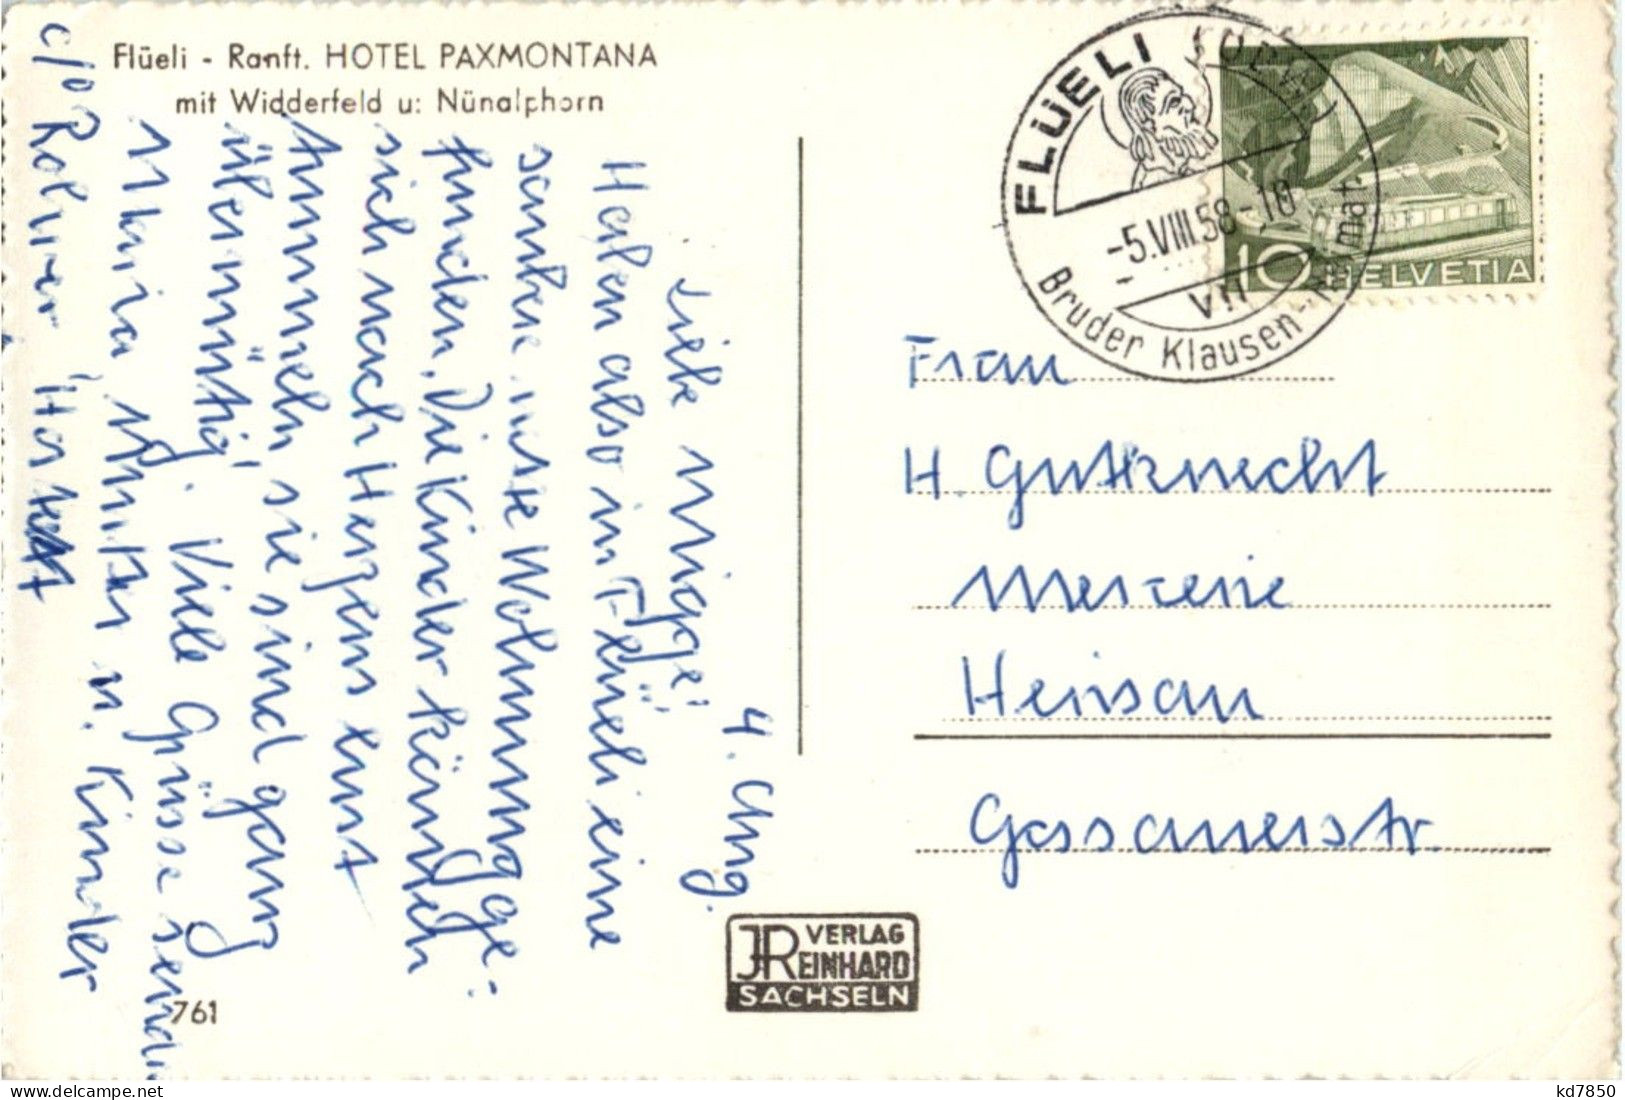 Flüeli - Ranft. HOTEL PAXMONTANA
mit Widderfeld u: Nünalphorn
4. Aug.
Liebe Miggi!
Haben also in Flüeli eine
saubere nette Wohnung ge-
funden. Die Kinder können
sich nach Herzens lust
tummeln, sie sind ganz
übermütig. Viele Grüsse senden
Maria,
u. Kinder
c/o Rohrer
FLÜELI
-5.VIII.58-10
VII
Bruder Klausen-
10 HELVETIA
Frau
H. Gutknecht
Mercerie
Heinsau
Gossauerstr.
JR VERLAG
REINHARD
SACHSELN
761
kd7850